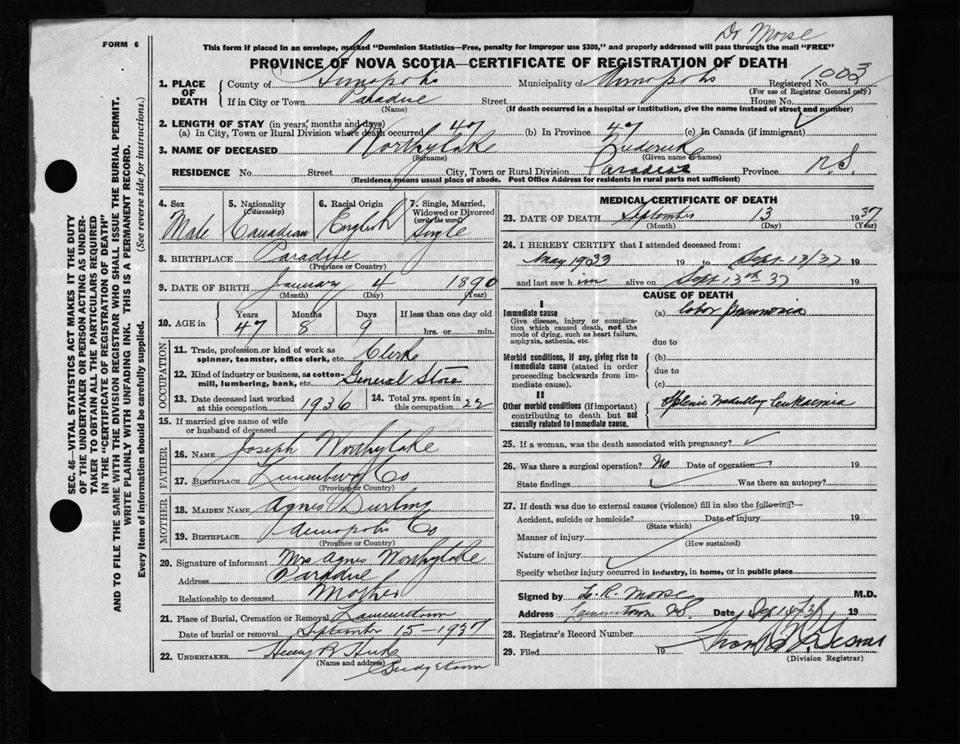 Dr Morse
FORM 6
This form if placed in an envelope, marked "Dominion Statistics—Free, penalty for improper use $300," and properly addressed will pass through the mail "FREE"
PROVINCE OF NOVA SCOTIA—CERTIFICATE OF REGISTRATION OF DEATH
1. PLACE OF DEATH
County of Annapolis Municipality of Annapolis Registered No. 1003
(For use of Registrar General only)
If in City or Town Paradise Street House No.
(Name) (If death occurred in a hospital or institution, give the name instead of street and number)
2. LENGTH OF STAY (in years, months and days)
(a) In City, Town or Rural Division where death occurred 47 (b) In Province 47 (c) In Canada (if immigrant)
3. NAME OF DECEASED Worthylake Frederick
(Surname) (Given name or names)
RESIDENCE No. Street City, Town or Rural Division Paradise Province N.S.
(Residence means usual place of abode. Post Office Address for residents in rural parts not sufficient)
4. Sex Male
5. Nationality (Citizenship) Canadian
6. Racial Origin English
7. Single, Married, Widowed or Divorced (write the word) Single
8. BIRTHPLACE Paradise
(Province or Country)
9. DATE OF BIRTH January 4 1890
(Month) (Day) (Year)
10. AGE in Years Months Days If less than one day old
47 8 9 hrs. or min.
OCCUPATION
11. Trade, profession or kind of work as spinner, teamster, office clerk, etc. Clerk
12. Kind of industry or business, as cotton-mill, lumbering, bank, etc. General Store
13. Date deceased last worked at this occupation 1936
14. Total yrs. spent in this occupation 22
15. If married give name of wife or husband of deceased
FATHER
16. Name Joseph Worthylake
17. Birthplace Lunenburg Co
(Province or Country)
MOTHER
18. MAIDEN NAME Agnes Durling
19. BIRTHPLACE Annapolis Co
(Province or Country)
20. Signature of informant Mrs Agnes Worthylake
Address Paradise
Relationship to deceased Mother
21. Place of Burial, Cremation or Removal Lawrencetown
Date of burial or removal September 15-1937
22. UNDERTAKER Henry B Hicks
(Name and address) Bridgetown
MEDICAL CERTIFICATE OF DEATH
23. DATE OF DEATH September 13 1937
(Month) (Day) (Year)
24. I HEREBY CERTIFY that I attended deceased from:
May 1933 19 to Sept. 13/37 19
and last saw him alive on Sept. 13th 37 19
CAUSE OF DEATH
I
Immediate cause
Give disease, injury or complication which caused death, not the mode of dying, such as heart failure, asphyxia, asthenia, etc.
(a) Lobar pneumonia
due to
Morbid conditions, if any, giving rise to immediate cause (stated in order proceeding backwards from immediate cause).
(b)
due to
(c)
II
Other morbid conditions (if important) contributing to death but not causally related to immediate cause.
Splenic Medullary Leukaemia
25. If a woman, was the death associated with pregnancy?
26. Was there a surgical operation? No Date of operation 19
State findings Was there an autopsy?
27. If death was due to external causes (violence) fill in also the following:—
Accident, suicide or homicide? Date of injury 19
(State which)
Manner of injury
(How sustained)
Nature of injury
Specify whether injury occurred in industry, in home, or in public place
Signed by L. R. Morse M.D.
Address Lawrencetown NS Date 19
28. Registrar's Record Number
29. Filed 19
(Division Registrar)
SEC. 46—VITAL STATISTICS ACT MAKES IT THE DUTY
OF THE UNDERTAKER OR PERSON ACTING AS UNDER-
TAKER TO OBTAIN ALL THE PARTICULARS REQUIRED
IN THE "CERTIFICATE OF REGISTRATION OF DEATH"
AND TO FILE THE SAME WITH THE DIVISION REGISTRAR WHO SHALL ISSUE THE BURIAL PERMIT.
WRITE PLAINLY WITH UNFADING INK. THIS IS A PERMANENT RECORD.
Every item of information should be carefully supplied. (See reverse side for instructions.)